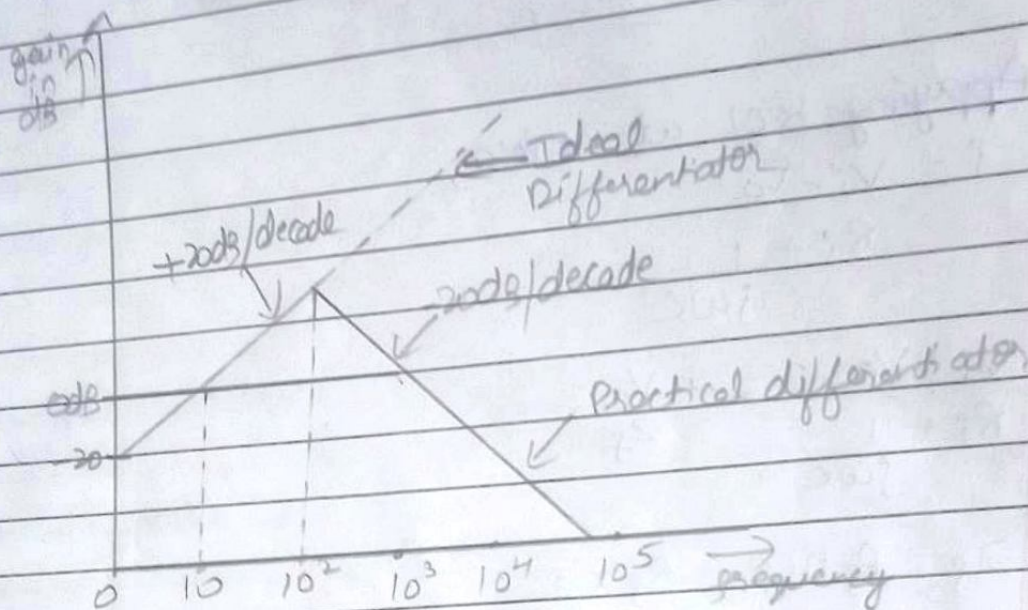 gain
in
dB
Ideal
Differentiator
+20dB/decade
-20dB/decade
0dB
Practical differentiator
-20
0 10 10² 10³ 10⁴ 10⁵
frequency